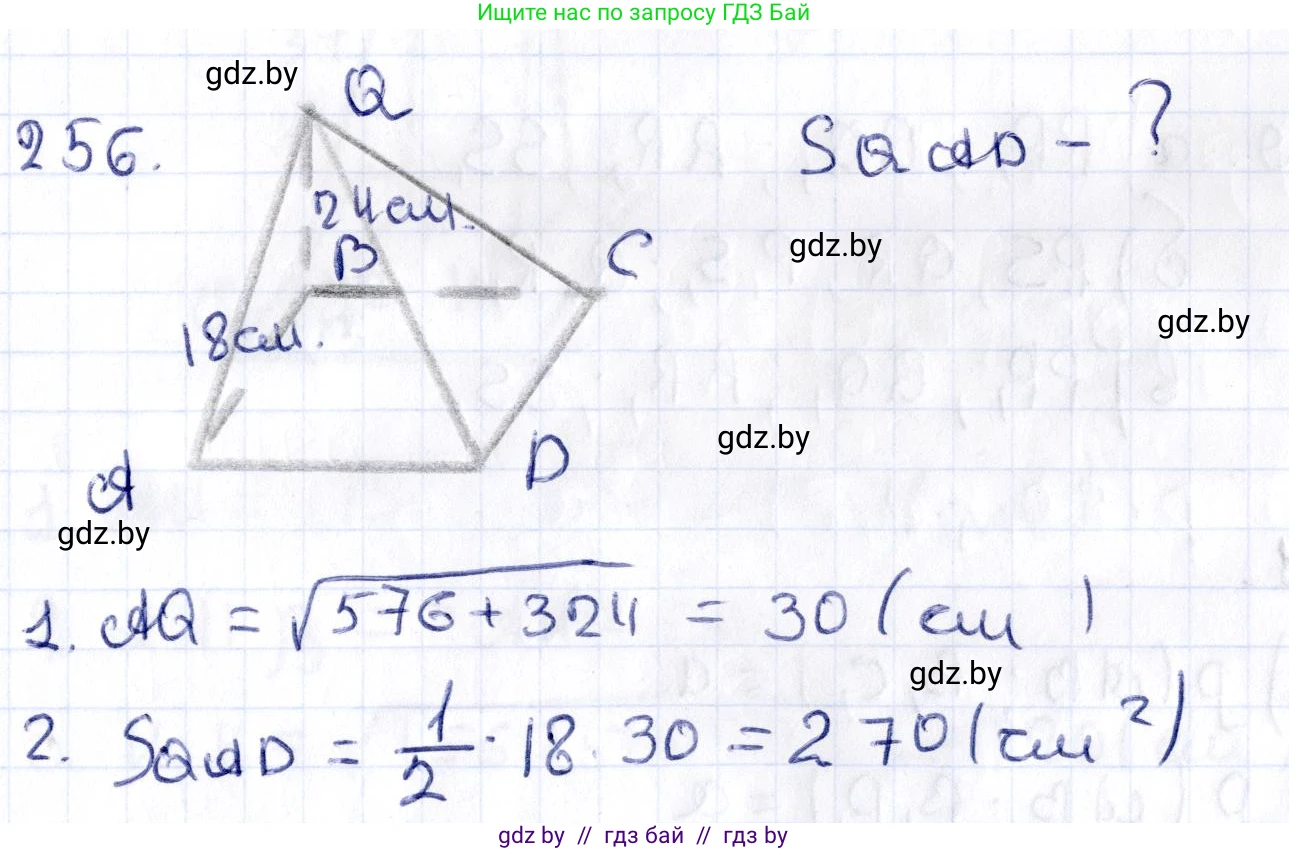 Ищите нас по запросу ГДЗ Бай
gdz.by
Q
256.
SQAD - ?
24 см.
B
C
gdz.by
gdz.by
18 см.
gdz.by
D
A
gdz.by
1. AQ = √576 + 324 = 30 (см)
gdz.by
2. SQAD = 1/2 · 18 · 30 = 270 (см²)
gdz.by // гдз бай // гдз by